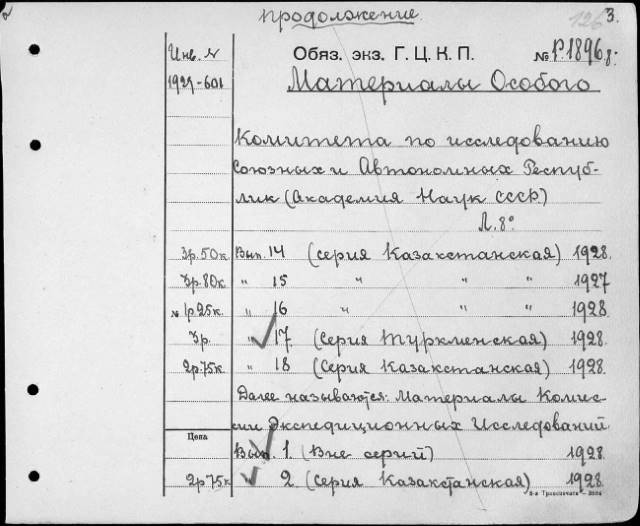 продолжение.
126 3.
Инв. №
Обяз. экз. Г. Ц. К. П. № Р.1896 г.
1927-601
Материалы Особого
Комитета по исследованию
Союзных и Автономных Респуб-
лик (Академия Наук СССР)
Л. 8°
3р.50к. Вып. 14 (серия Казакстанская) 1928.
3р.80к. " 15 " " " 1927
№ 1р.25к. " 16 " " " 1928.
3р. " 17 (серия Туркменская) 1928.
2р.75к. " 18 (серия Казакстанская) 1928.
Далее называются: Материалы Комис-
сии Экспедиционных Исследований
Цена
Вып. 1. (Вне серий) 1928.
2р75к " 2. (серия Казакстанская) 1928.